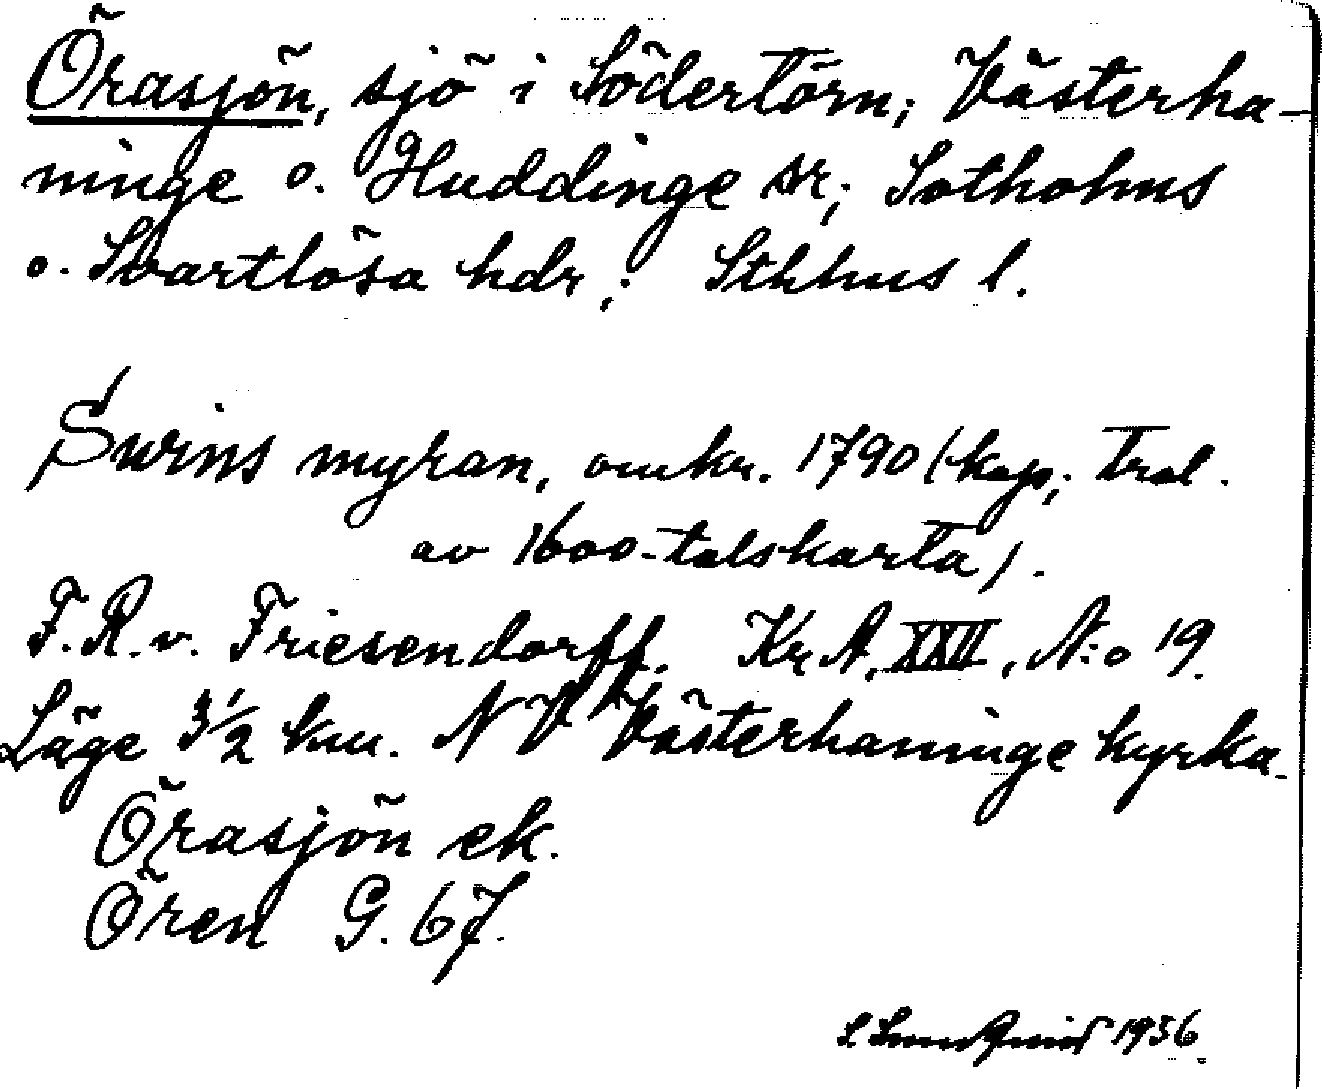 Örasjön, sjö i Södertörn; Västerha-
ninge o. Huddinge snr; Sotholms
o. Svartlösa hdr; Sthlms l.
Swins myran, omkr. 1790 (kop; trol.
av 1600-talskarta).
F. R. v. Friesendorff. Kr. A. XXII, N:o 19.
Läge 3 1/2 km. NV Västerhaninge kyrka.
Örasjön ek.
Ören G. 67.
1956